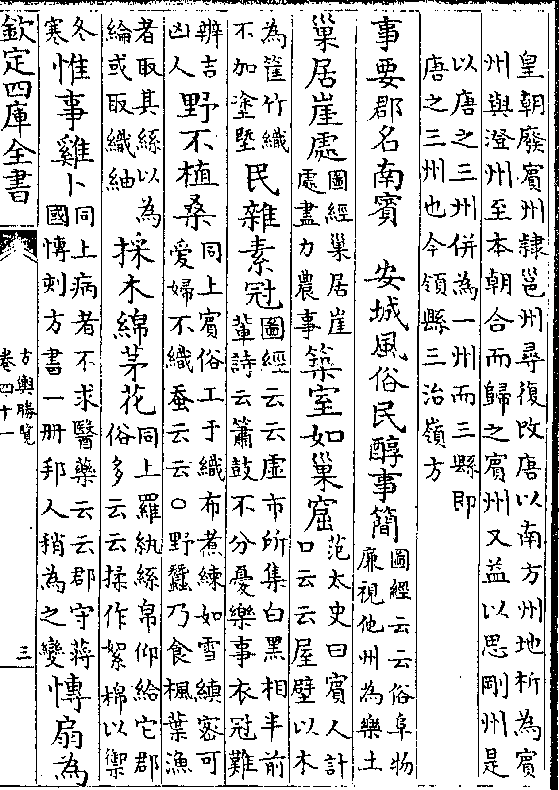 皇朝廢賓州隸邕州尋復改唐以南方州地析為賓
州與澄州至本朝合而歸之賓州又益以思剛州是
以唐之三州併為一州而三縣即
唐之三州也今領縣三治嶺方
事要郡名南賓 安城風俗民醇事簡圖經云云俗阜物
廉視他州為樂土
巢居崖處圖經巢居崖
處盡力農事築室如巢窟范太史曰賓人計
口云云屋壁以木
為筐竹織
不加塗墍民雜素冠圖經云云虛市所集白黑相半前
輩詩云簫鼓不分憂樂事衣冠難
辨吉
凶人野不植桑同上賓俗工于織布煮練如雪縝密可
愛婦不織蚕云云○野蠶乃食楓葉漁
者取其絲以為
綸或取織紬採木綿茅花同上羅紈絲帛仰給它郡
俗多云云揉作絮棉以禦
冬
寒惟事雞卜同上病者不求醫藥云云郡守蔣
國愽刻方書一册邦人稍為之變愽扇為
欽定四庫全書
方輿勝覽
卷四十一
三